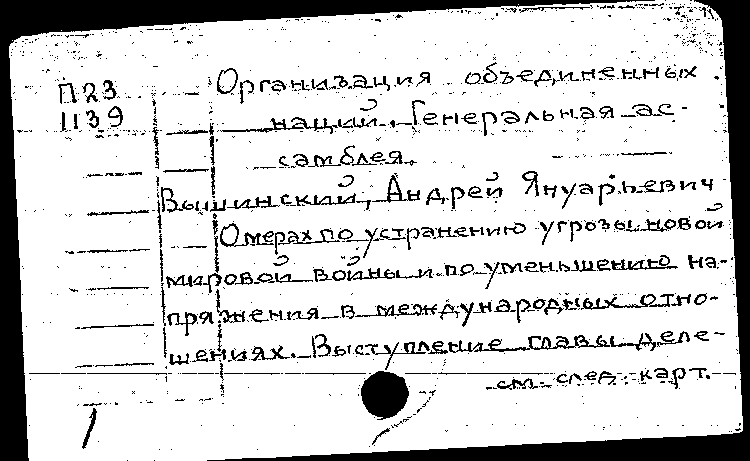 П23
1139
Организация объединенных
наций. Генеральная ас-
самблея.
Вышинский, Андрей Януарьевич
О мерах по устранению угрозы новой
мировой войны и по уменьшению на-
пряжения в международных отно-
шениях. Выступление главы деле-
см. след. карт.
1